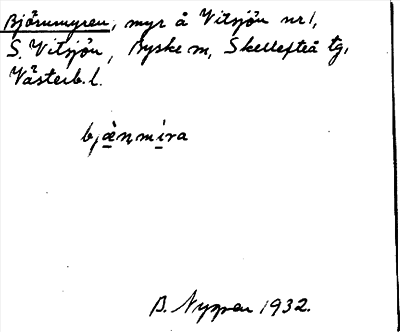 Björnmyren, myr å Vitsjön nr 1,
S. Vitsjön, Byske m, Skellefteå tg,
Västerb. l.
bjæ̀ṇmíra
B. Nyman 1932.